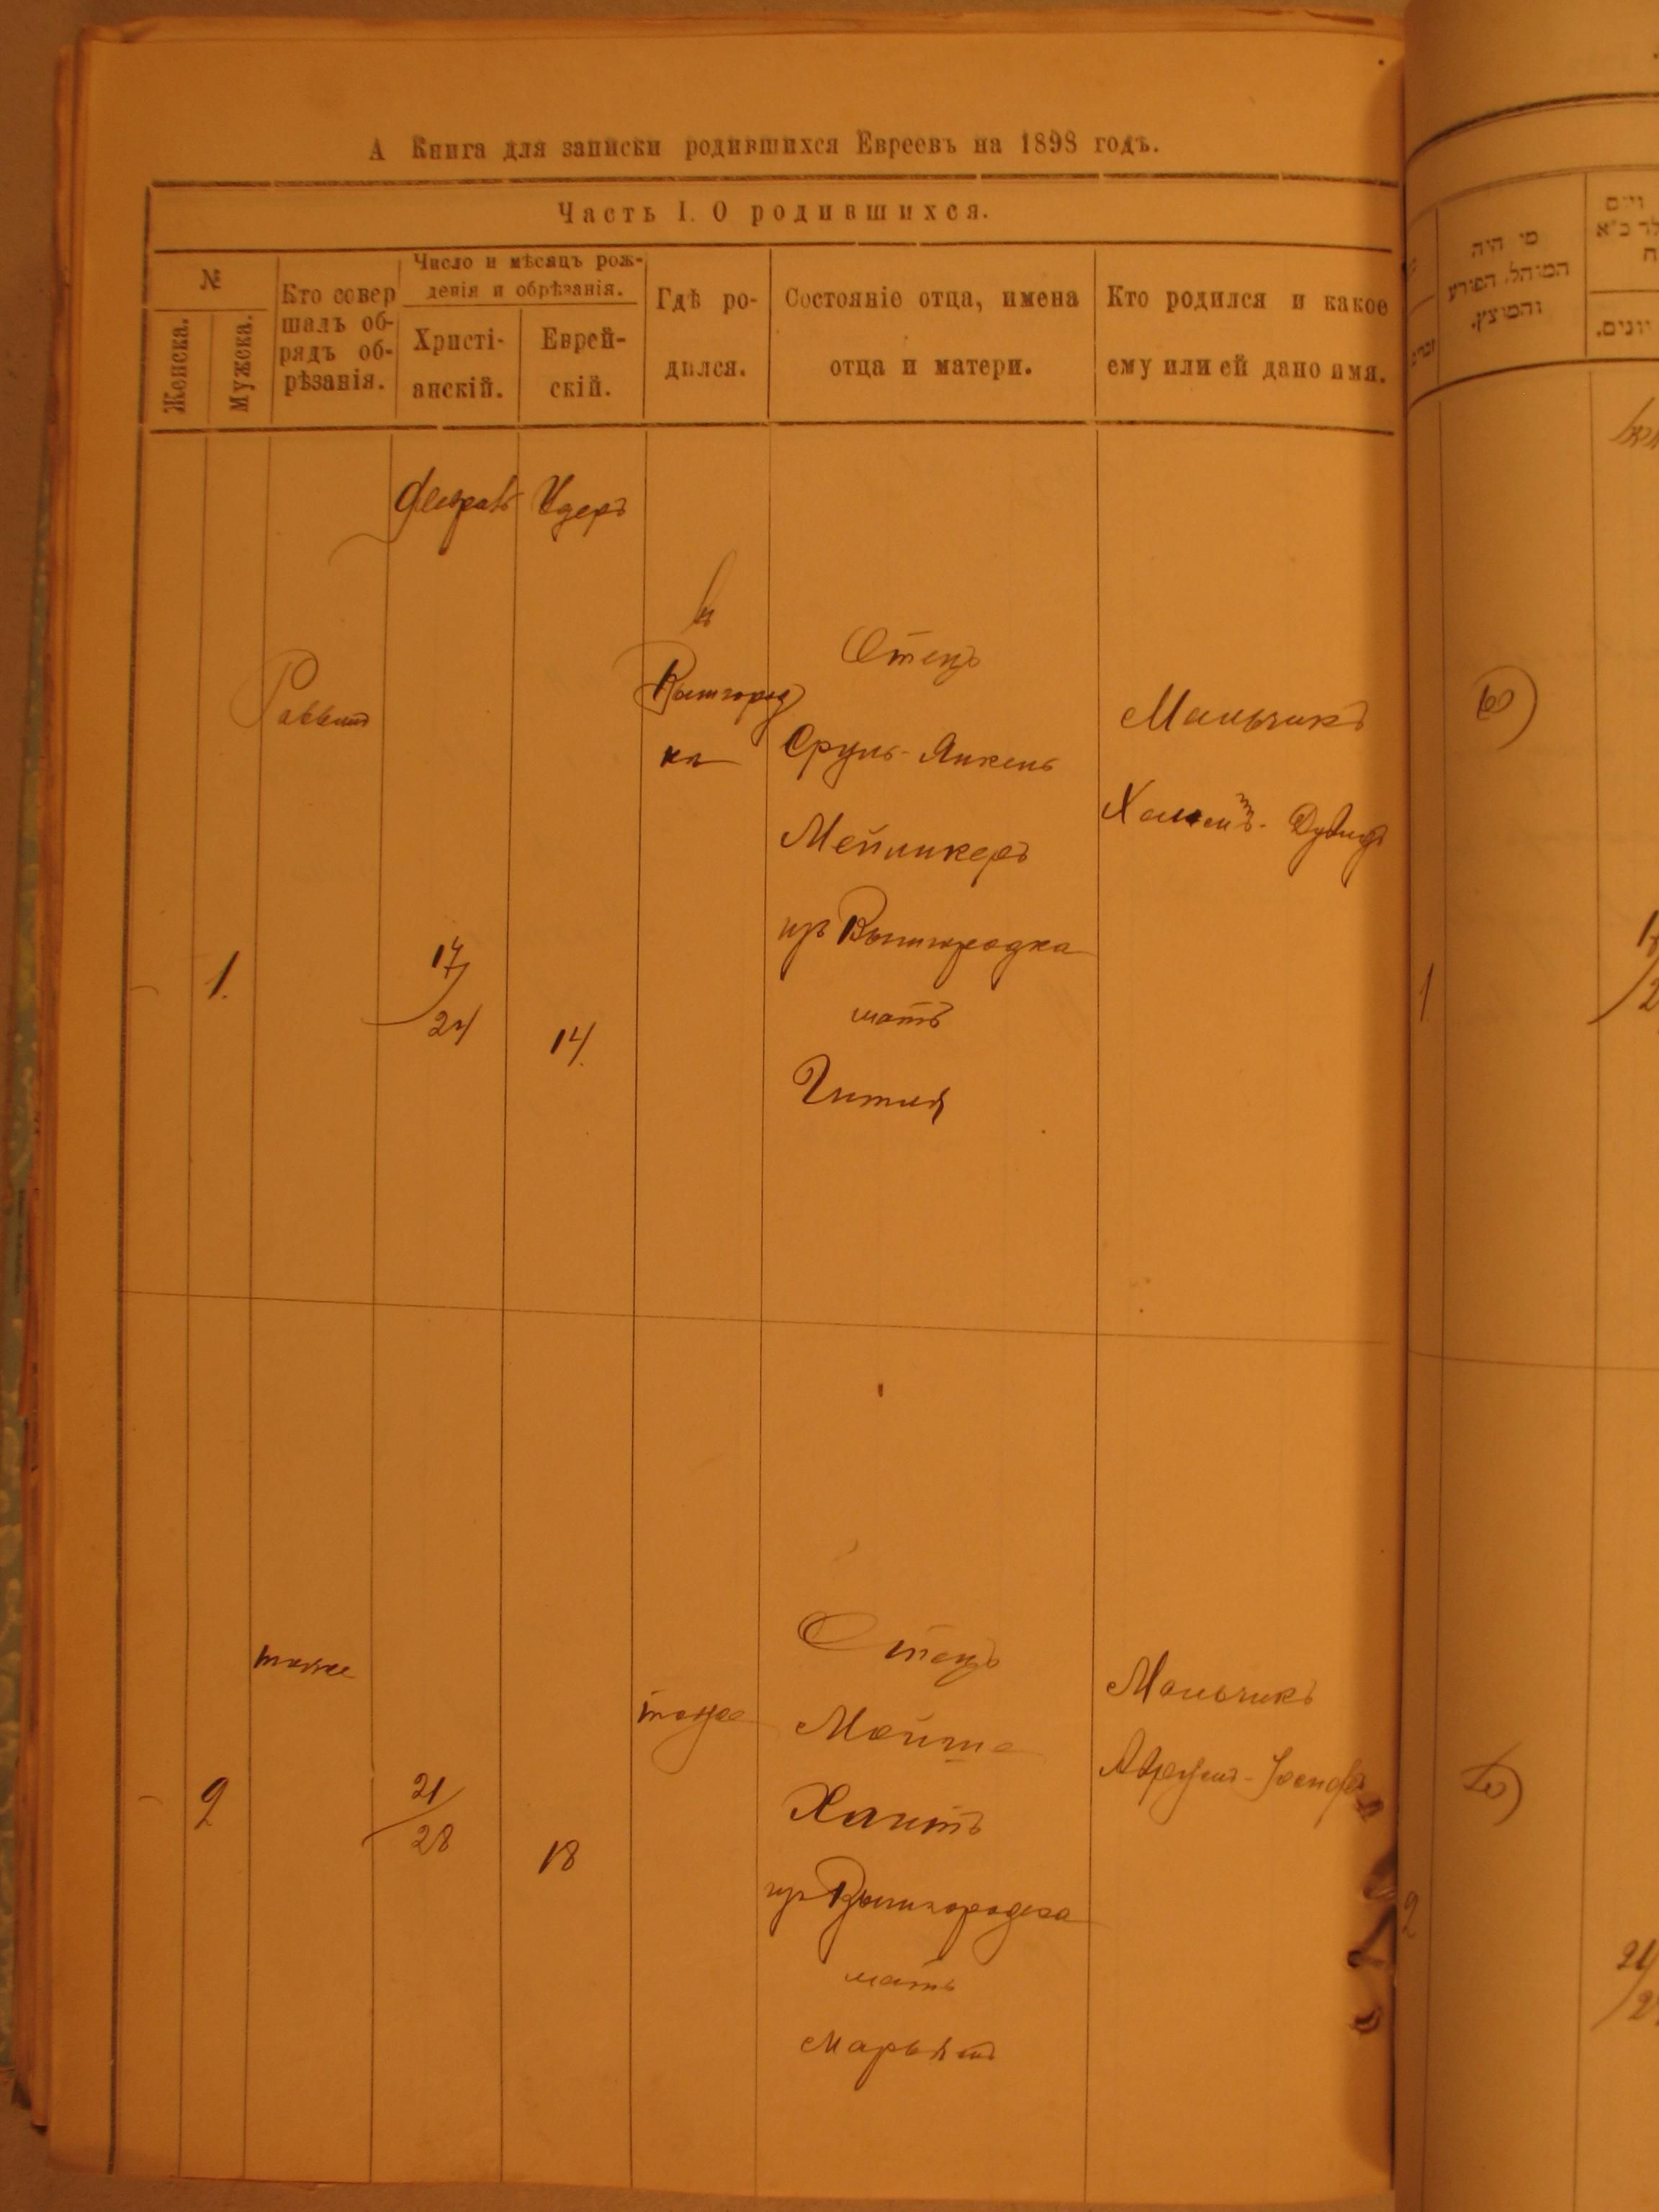 А Книга для записки родившихся Евреевъ на 1898 годъ.
Часть I. О родившихся.
№
Женска.
Мужска.
Кто совер
шалъ об-
рядъ об-
рѣзанія.
Число и мѣсяцъ рож-
денія и обрѣзанія.
Христі-
анскій.
Еврей-
скій.
Гдѣ ро-
дился.
Состояніе отца, имена
отца и матери.
Кто родился и какое
ему или ей дано имя.
Адеръ
1.
Раввинъ
17
24
14.
в
Вышгород
ка
Отецъ
Сруль-Янкель
Мейникеръ
изъ Вышгородка
мать
Гитля
Мальчикъ
Дувидъ
2
тоже
21
28
18
тоже
Отецъ
Мойше
Хаитъ
изъ Вышгородка
мать
Марьям
Мальчикъ
Аврумъ-Іосифъ
מי היה
המוהל, הפורע
והמוצץ.
יונים.
1
2